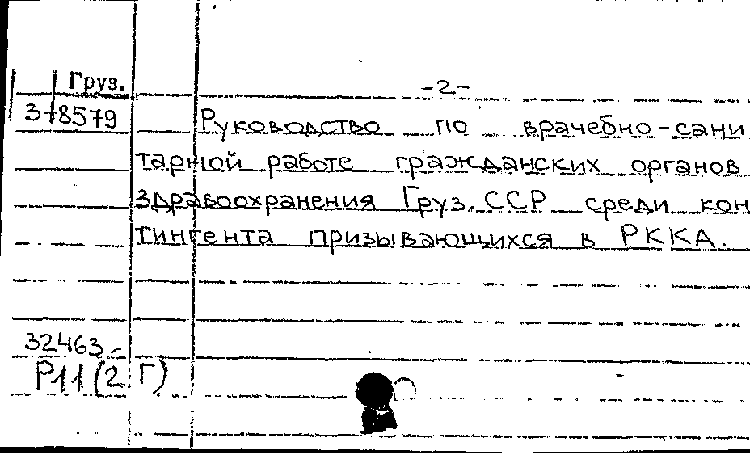 Груз.
-2-
3-8579
Руководство по врачебно-сани
тарной работе гражданских органов
здравоохранения Груз. ССР среди кон
тингента призывающихся в РККА.
32463-
Р11(2 Г)